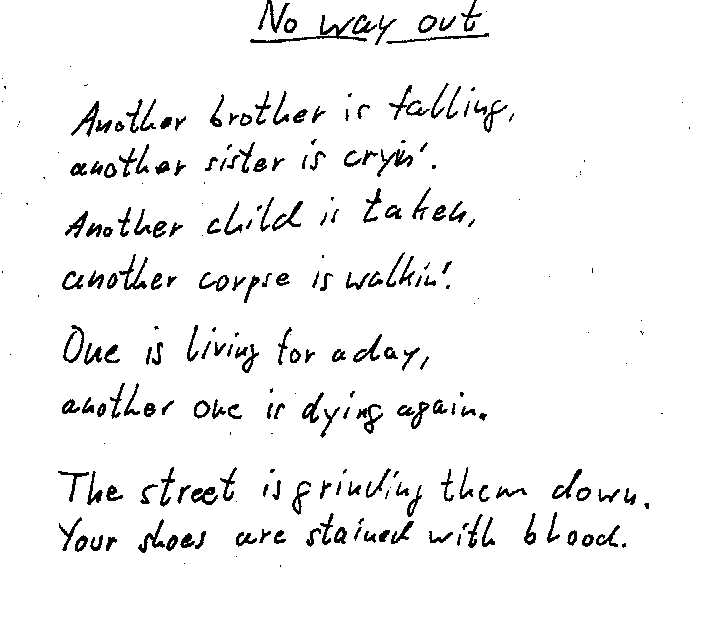 No way out
Another brother is falling,
another sister is cryin'.
Another child is taken,
another corpse is walkin'.
One is living for a day,
another one is dying again.
The street is grinding them down.
Your shoes are stained with blood.